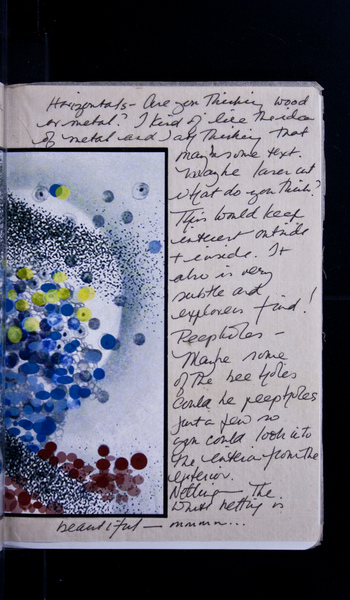 Horizontals – Are you thinking wood
or metal? I kind of like the idea
of metal and I am thinking that
maybe some text.
Maybe laser cut
what do you think?
This would keep
interest outside
+ inside. It
also is very
subtle and
explorers find!
Peepholes –
Maybe some
of the bee holes
could be peepholes
just a few so
you could look into
the interior from the
exterior.
Netting – The
white netting is
beautiful – mmmm...